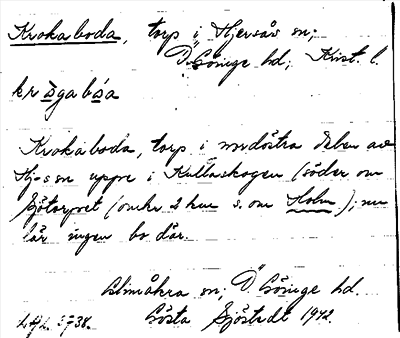 Krokaboda, torp i Hjersås sn;
Ö. Göinge hd; Krist. l.
krògabóa
Krokaboda, torp i nordöstra delen av
Hj-s sn uppe i Kullaskogen (söder om
Sjötorpet (omkr 2 km s. om Holm); nu
lär ingen bo där.
Glimåkra sn, Ö. Göinge hd.
Gösta Sjöstedt 1942.